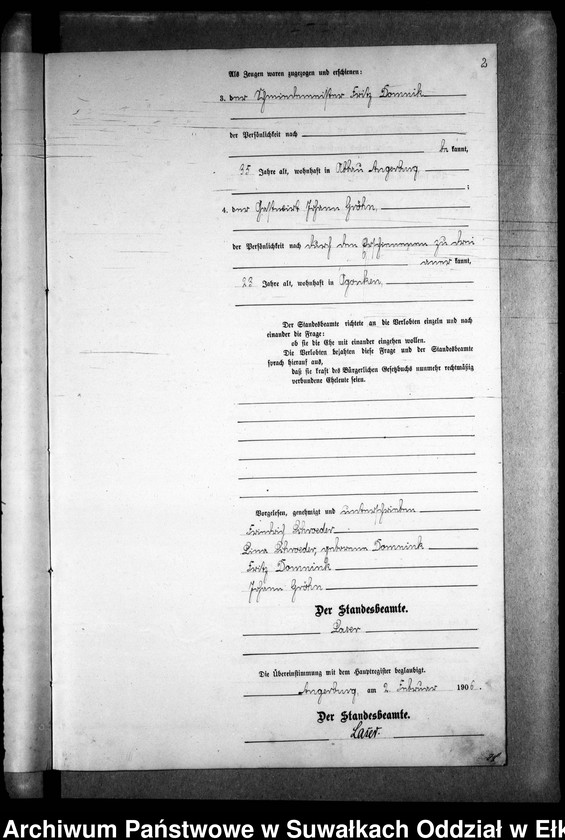 2
Als Zeugen waren zugezogen und erschienen:
3. der Schmiedemeister Fritz Domnik
der Persönlichkeit nach
be kannt,
35 Jahre alt, wohnhaft in Abbau Angerburg
;
4. der Gastwirt Johann Gröhn,
der Persönlichkeit nach durch den Erschienenen zu drei
aner kannt,
23 Jahre alt, wohnhaft in Ogonken,
Der Standesbeamte richtete an die Verlobten einzeln und nach
einander die Frage:
ob sie die Ehe mit einander eingehen wollen.
Die Verlobten bejahten diese Frage und der Standesbeamte
sprach hierauf aus,
daß sie kraft des Bürgerlichen Gesetzbuchs nunmehr rechtmäßig
verbundene Eheleute seien.
Vorgelesen, genehmigt und unterschrieben
Friedrich Schroeder
Schroeder, geborene Domnick
Fritz Domnick
Johann Gröhn
Der Standesbeamte.
Laser
Die Übereinstimmung mit dem Hauptregister beglaubigt.
Angerburg, am 2. Februar 1906.
Der Standesbeamte.
Laser.
Archiwum Państwowe w Suwałkach Oddział w Ełk